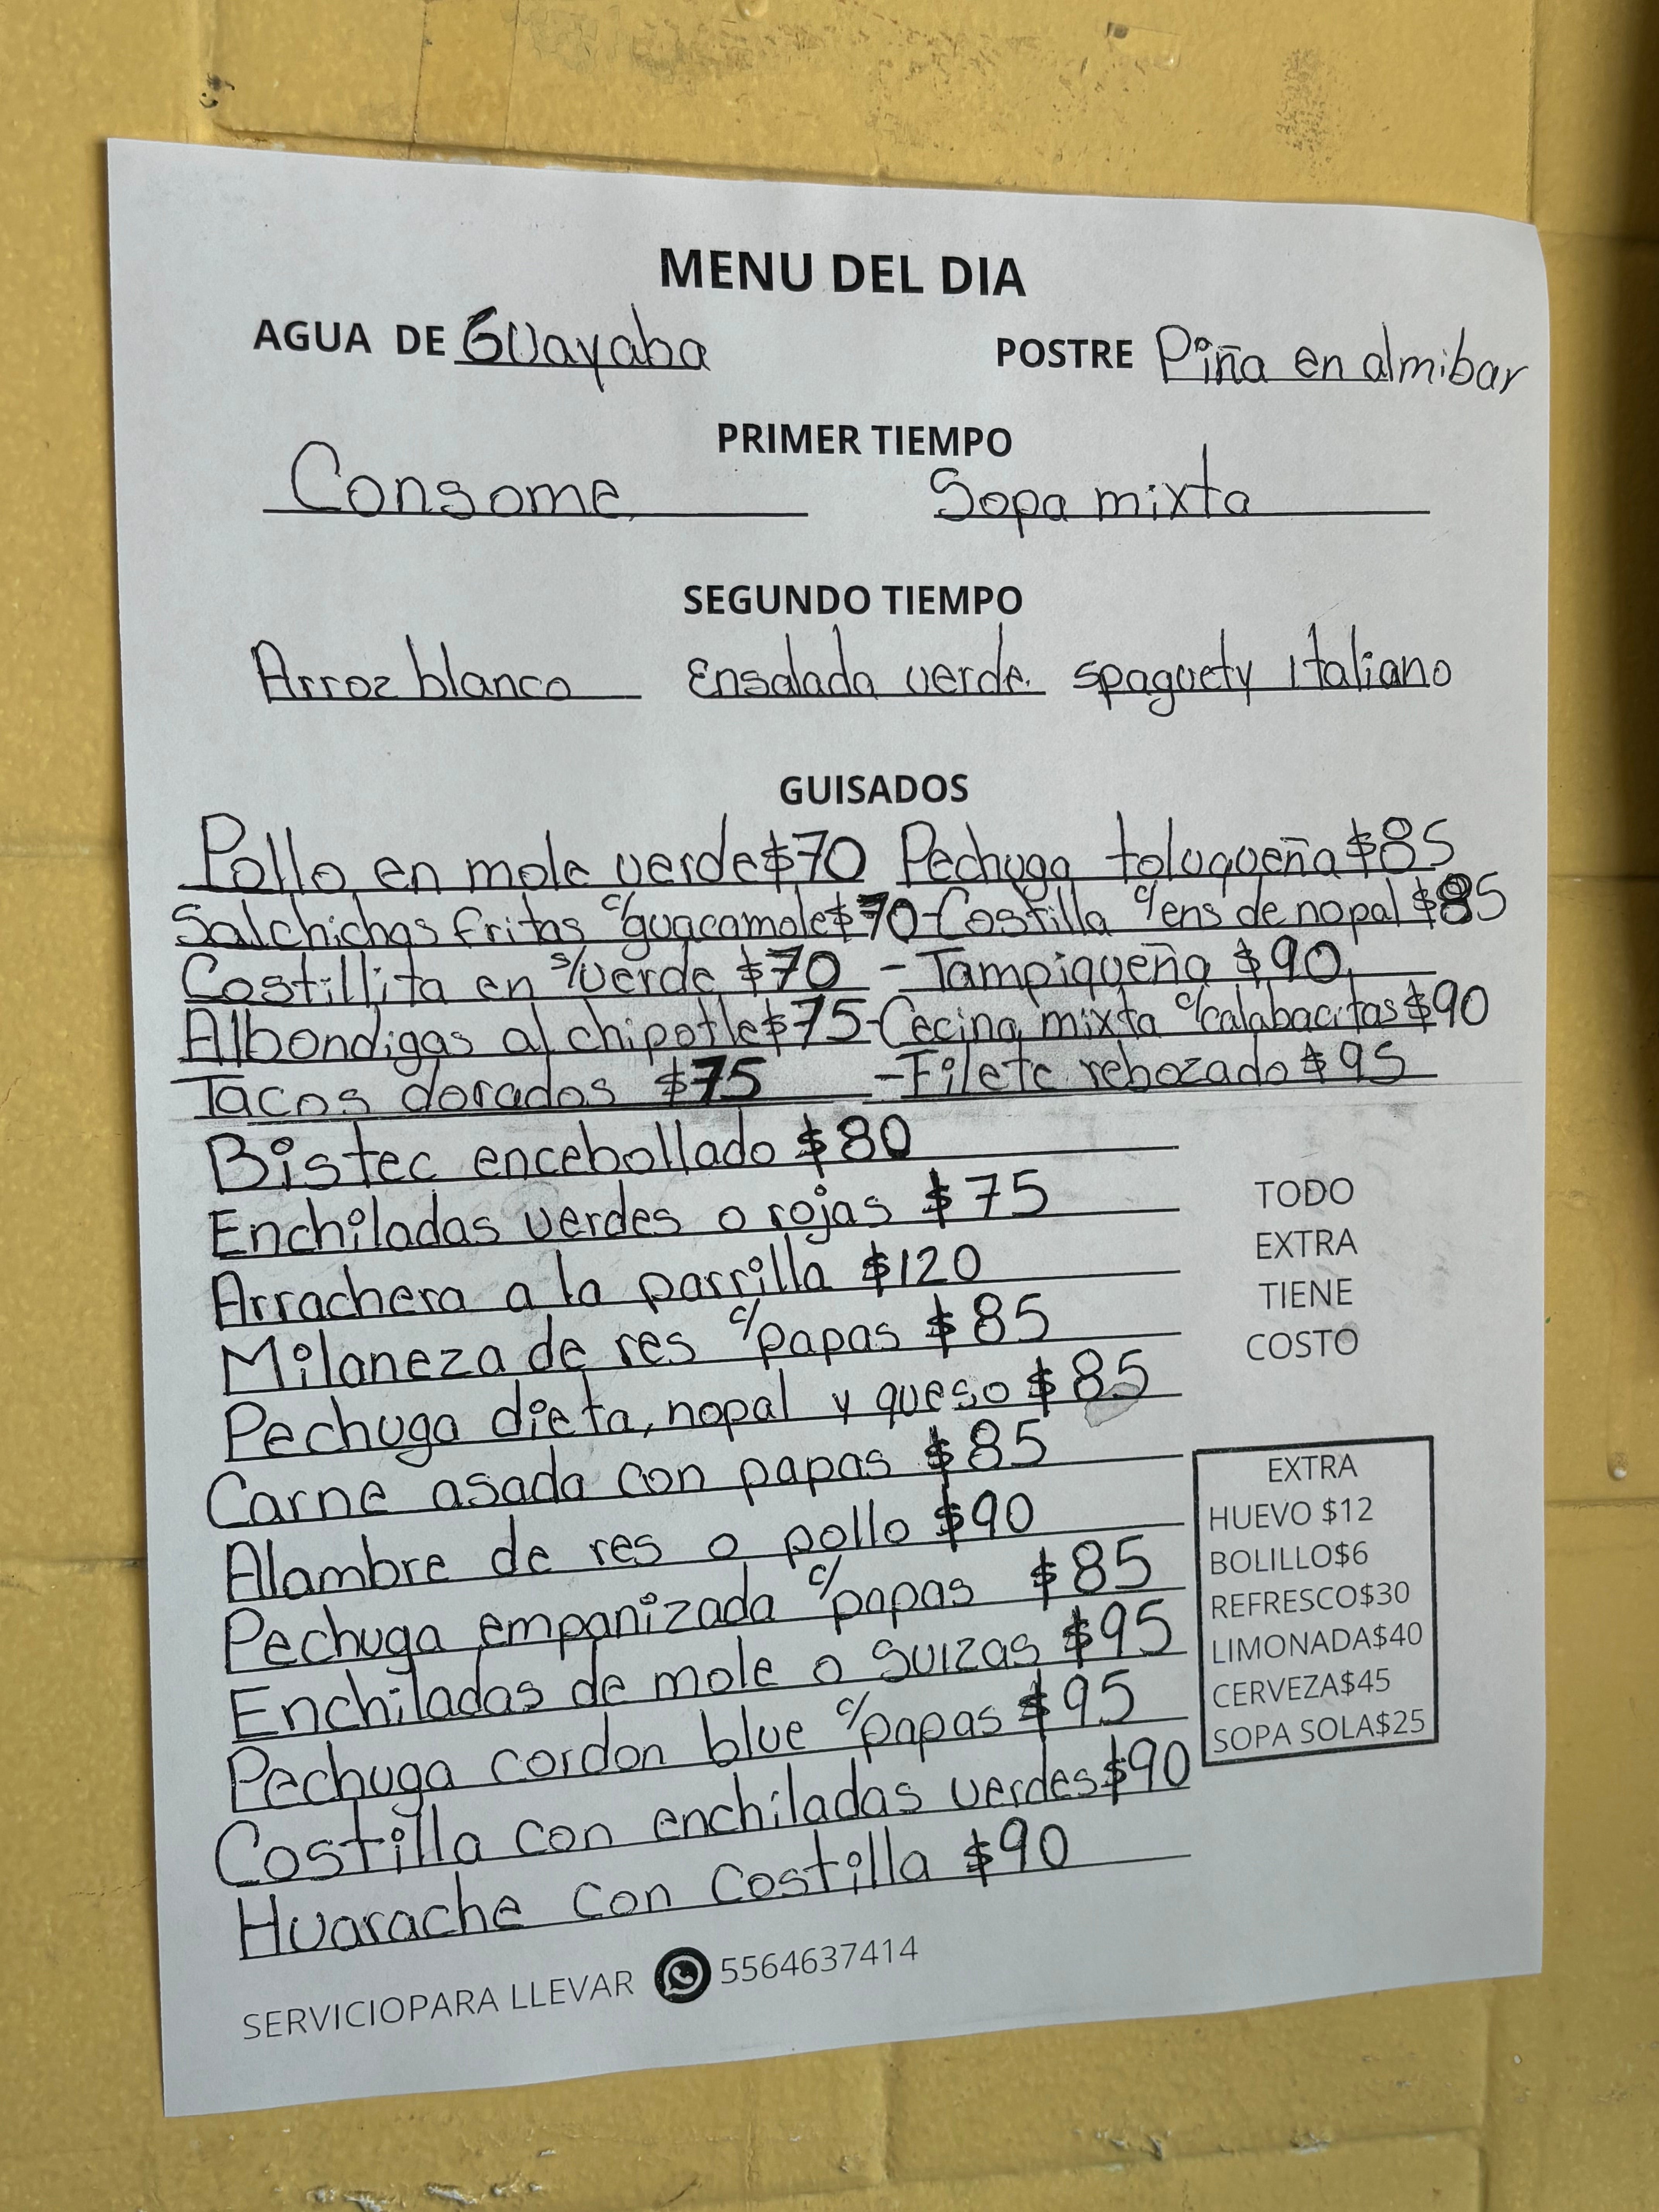 MENU DEL DIA
AGUA DE Guayaba POSTRE Piña en almibar
PRIMER TIEMPO
Consome Sopa mixta
SEGUNDO TIEMPO
Arroz blanco Ensalada verde. spaguety italiano
GUISADOS
Pollo en mole verde $70 Pechuga toluqueña $85
Salchichas fritas c/guacamole $70 - Costilla c/ens de nopal $85
Costillita en s/verde $70 - Tampiqueña $90
Albondigas al chipotle $75 - Cecina mixta c/calabacitas $90
Tacos dorados $75 - Filete rebozado $95
Bistec encebollado $80
Enchiladas verdes o rojas $75
Arrachera a la parrilla $120
Milaneza de res c/papas $85
Pechuga dieta, nopal y queso $85
Carne asada con papas $85
Alambre de res o pollo $90
Pechuga empanizada c/papas $85
Enchiladas de mole o suizas $95
Pechuga cordon blue c/papas $95
Costilla con enchiladas verdes $90
Huarache con costilla $90
TODO
EXTRA
TIENE
COSTO
EXTRA
HUEVO $12
BOLILLO$6
REFRESCO$30
LIMONADA$40
CERVEZA$45
SOPA SOLA$25
SERVICIOPARA LLEVAR 5564637414